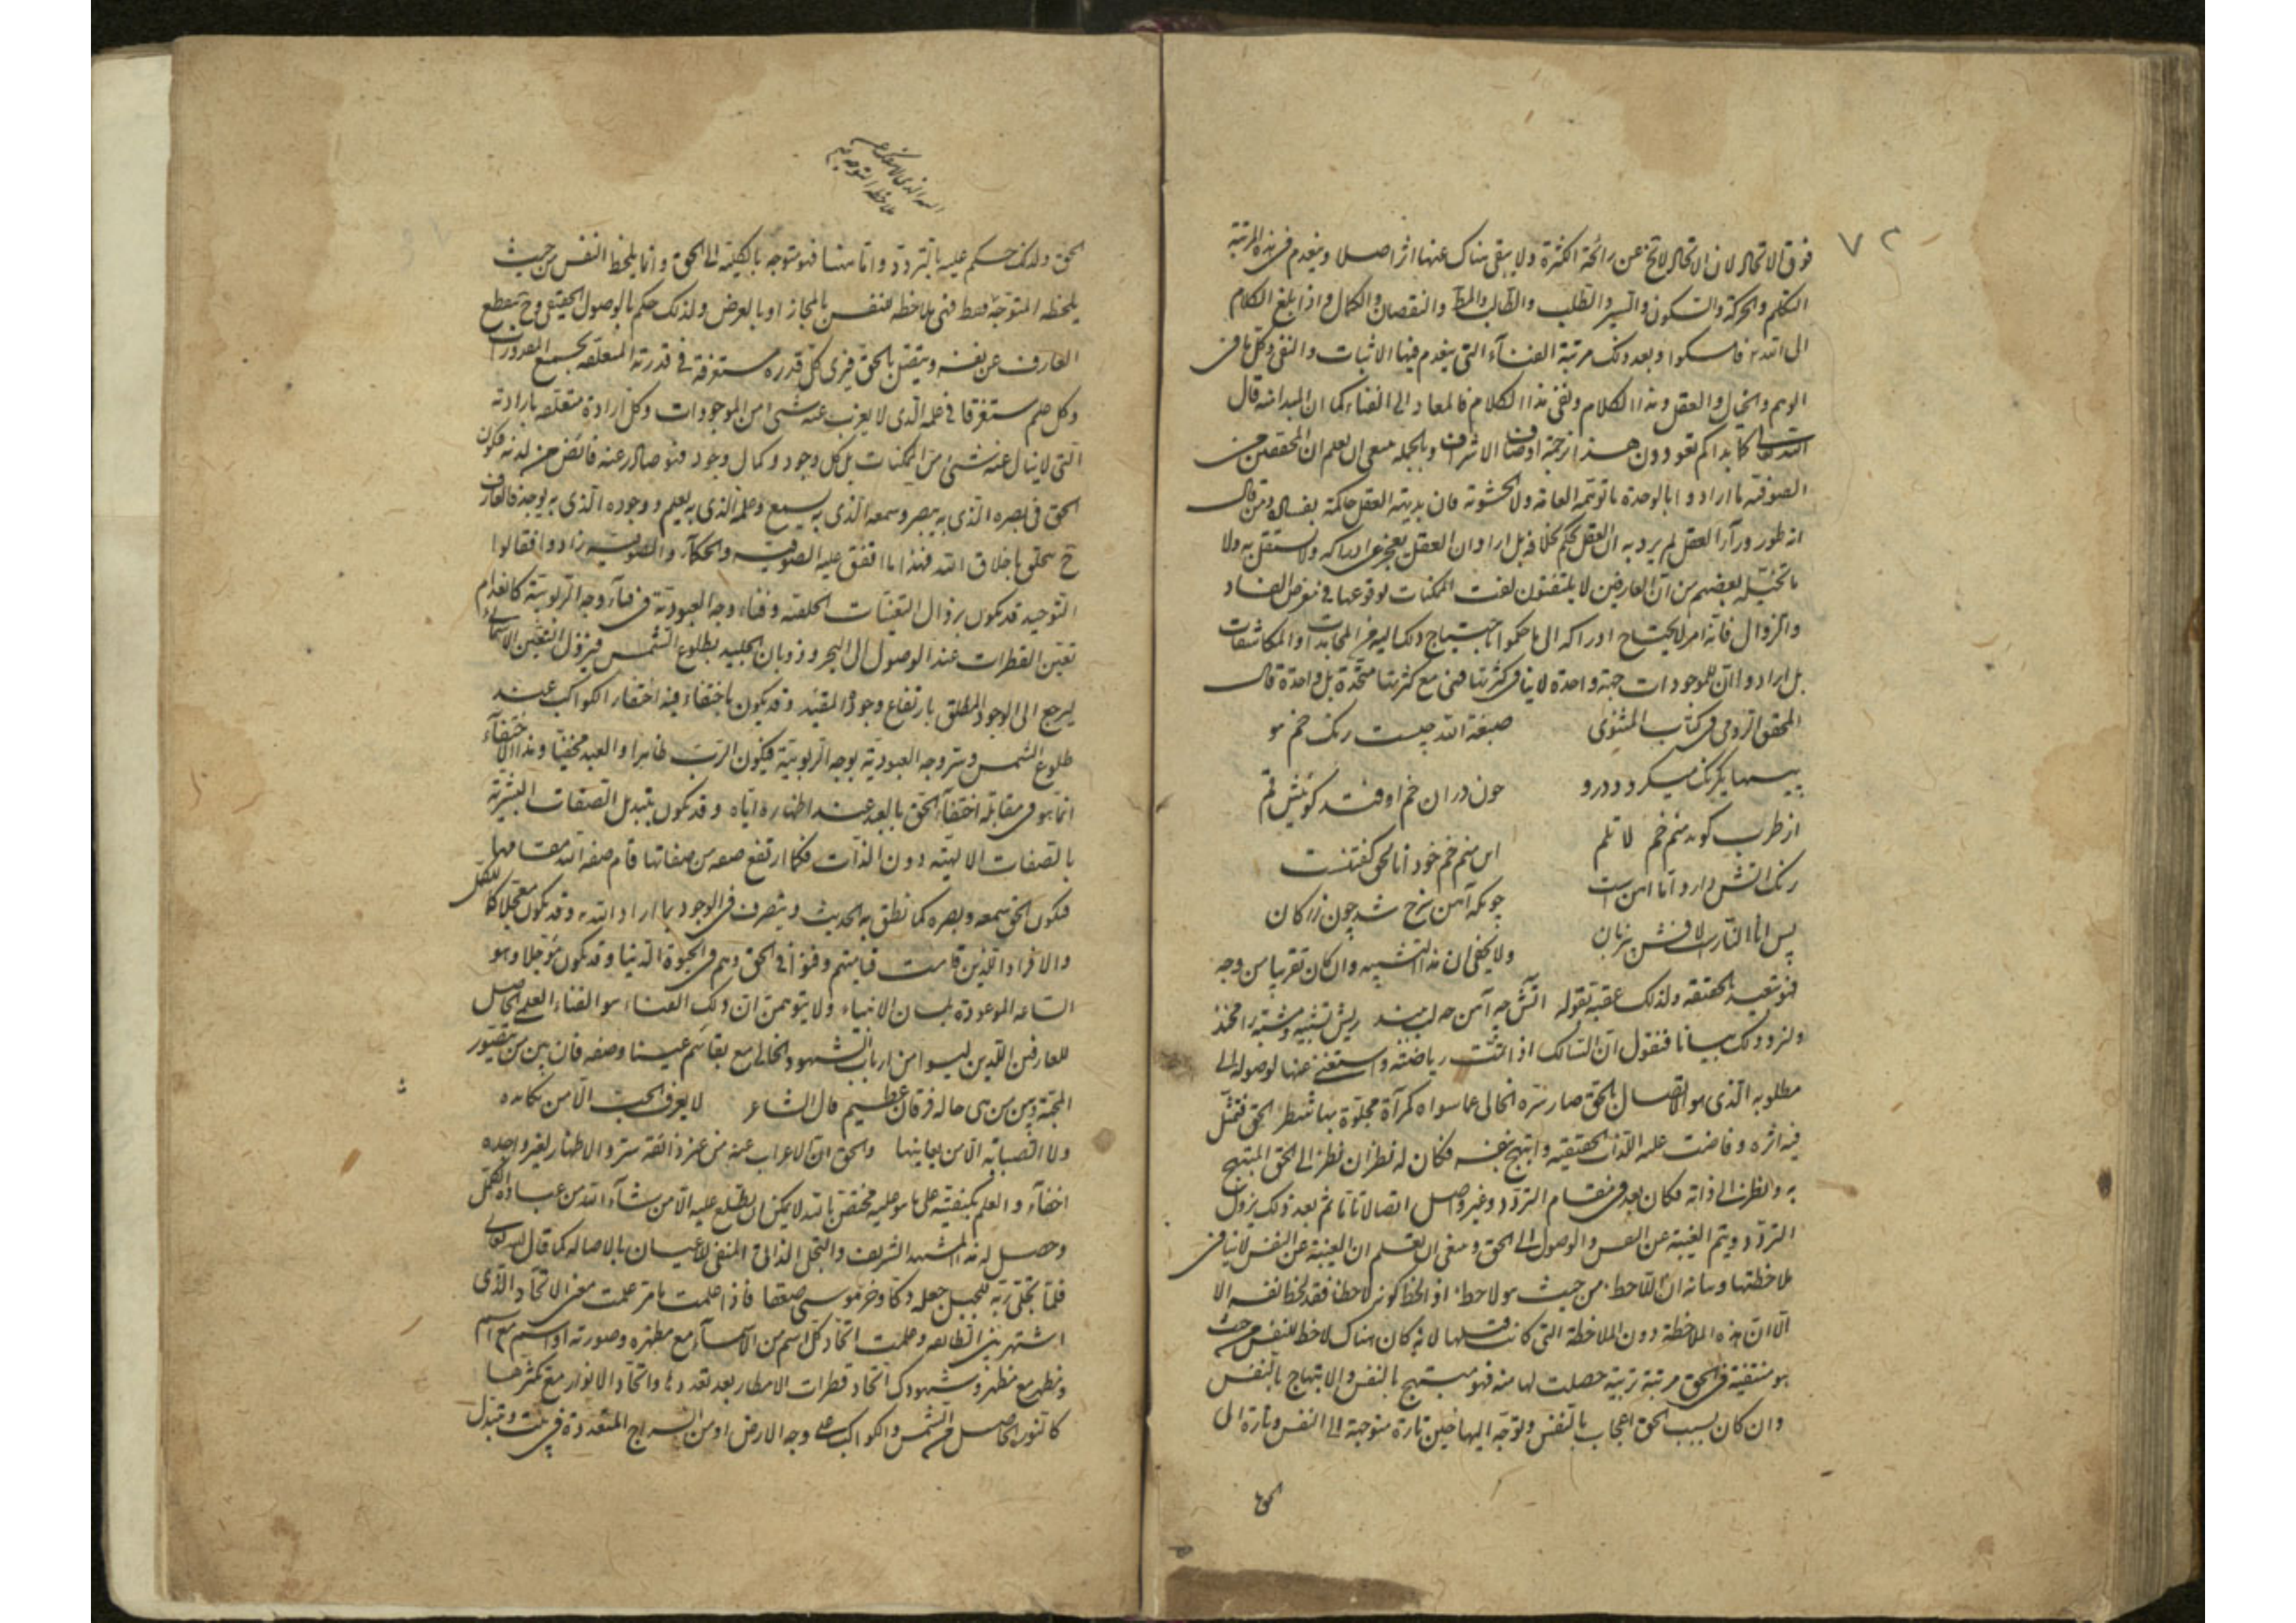 ٧٢
فوق الاتحاد لان الاتحاد لا يخ عن رائحة الكثرة ولا يبقى هناك عنها اثر اصلا وينعدم فى هذه المرتبة
التكلم والحركة والسكون والسير والطلب والطالب والمط والنقصان والكمال واذا بلغ الكلام
الى الله فاسكتوا وبعد ذلك مرتبة الفنآء التى ينعدم فيها الاثبات والنفى وكل ما فى
الوهم والخيال والعقل وهذا الكلام ونفى هذا الكلام فالمعاد الى الفناء كما ان المبدا منه قال
الله تعالى كما بدأكم تعودون هذا ترجمة اوصاف الاشراف وبالجملة ينبغى ان يعلم ان المحققين من
الصوفيه ما ارادوا بالوحدة ما توهمه العامة ولا الحشوية فان بديهة العقل حاكمة بفساده ومن قال
انه طور ورآء العقل لم يرد به ان العقل يحكم بخلافه بل اراد ان العقل يعجز عن ادراكه ولا يستقل به ولا
ما تخيله بعضهم من ان العارفين لا يلتفتون لفت الممكنات لوقوعها فى معرض الفساد
والزوال فانه امر لا يحتاج ادراكه الى ما حكموا باحتياج ذلك اليه من المجاهدات او المكاشفات
بل ارادوا ان للموجودات جهة واحدة لا ينافى كثرتها فهى مع كثرتها متحدة بل واحدة قال
المحقق الرومى فى كتاب المثنوى صبغة الله چيست رنك خم هو
پيسها يكرنك ميكردد درو چون دران خم اوفتد كوئيش قم
از طرب كويد منم خم لا تلم اين منم خم خود انا الحق كفتنست
رنك آتش دارد اما آهن است چونكه آهن سرخ شد چون زركان
پس انا النار است لافش بى زبان ولا يخفى ان هذا التشبيه وان كان تقريبا من وجه
فهو تبعيد للحقيقه ولذلك عقبه بقوله آتش چه آهن چه لب ببند ريش تشبيه ومشبه را مخند
ولنزد ذلك بيانا فنقول ان السالك اذا تمت رياضته واستغنى عنها لوصوله الى
مطلوبه الذى هو الاتصال بالحق صار سره الخالى عما سواه كمرآة مجلوة بها شطر الحق فتمثل
فيه اثره وفاضت عليه اللذات الحقيقيه وابتهج بنفسه فكان له نظران نظر الى الحق المبتهج
به ونظر الى ذاته فكان بعد فى مقام التردد وغير واصل اتصالا تاما ثم بعد ذلك يزول
التردد ويتم الغيبة عن النفس والوصول الى الحق وينبغى ان تعلم ان الغيبة عن النفس لا ينافى
ملاحظتها وبيانه ان اللاحظ من حيث هو لاحظ اذا لحظ كونه لاحظا فقد لحظ نفسه الا
الا ان هذه الملاحظة دون الملاحظة التى كانت قبلها لانه كان هناك لاحظ للنفس من حيث
هو متنقشة فى الحق مرتبة بزينة حصلت لها منه فهو مبتهج بالنفس والابتهاج بالنفس
وان كان بسبب الحق اعجاب بالنفس وتوجه اليها فحين تارة متوجهة الى النفس وتارة الى
الحق
الحق ولذلك حكم عليه بالتردد واما ههنا فهو متوجه بالكلية الى الحق وانما يلحظ النفس من حيث
يلحظه المتوجه فقط فهى ملاحظه للنفس بالمجاز او بالعرض ولذلك حكم بالوصول الحقيقى وح ينقطع
العارف عن نفسه ويتصل بالحق فيرى كل قدرة مستغرقة فى قدرته المتعلقه بجميع المقدورات
وكل علم مستغرقا فى علمه الذى لا يعزب عنه شئ من الموجودات وكل ارادة متعلقه بارادته
التى لا ينال عنه شئ من الممكنات بل كل وجود وكمال وجود فهو صادر عنه فائض من لدنه فيكون
الحق فى بصره الذى به يبصر وسمعه الذى به يسمع وعلمه الذى به يعلم ووجوده الذى به يوجد فالعارف
ح تخلق باخلاق الله فهذا ما اتفق عليه الصوفيه والحكمآء والصوفيه زادوا فقالوا
التوحيد قد يكون بزوال التعينات الخلقيه وفناء وجه العبودية فى فنآء وجه الربوبية كانعدام
تعين القطرات عند الوصول الى البحر وذوبان الجليد بطلوع الشمس فيزول التعين الاسمائى
ليرجع الى الوجود المطلق بارتفاع وجوده المقيد وقد يكون باختفاء فيه اختفاء الكواكب عند
طلوع الشمس وستر وجه العبودية بوجه الربوبية فيكون الرب ظاهرا والعبد مخفيا وهذا الاختفآء
انما هو فى مقابلة اختفآء الحق بالعبد عند اظهاره اياه وقد يكون بتبدل الصفات البشرية
بالصفات الالهية دون الذات فكلما ارتفع صفة من صفاتها قام صفة الله مقامها
فيكون الحق سمعه وبصره كما نطق به الحديث ويتصرف فى الوجود بما اراد الله وقد يكون معجلا كما للكمل
والافراد الذين قامت قيامتهم وفنوا فى الحق وهم فى الحيوة الدنيا وقد يكون مؤجلا وهو
الساعه الموعودة بلسان الانبياء ولا يتوهمن ان ذلك الفناء هو الفناء العلمى الحاصل
للعارفين الذين ليسوا من ارباب الشهود الحالى مع بقائهم عينا وصفه فان بين من يتصور
المحبة وبين من هى حاله فرقان عظيم قال الشاعر لا يعرف الحب الا من يكابده
ولا الصبابة الا من يعانيها والحق ان الاعراب عنه من غير ذائقه ستر والاظهار لغير واجده
اخفآء والعلم بكيفيته على ما هو عليه مختص بالله لا يمكن ان يطلع عليه الا من شآء الله من عباده الكمل
وحصل له هذا المشهد الشريف والتجلى الذاتى المفنى للاعيان بالاصاله كما قال الله تعالى
فلما تجلى ربه للجبل جعله دكا وخر موسى صعقا فاذا علمت ما مر علمت معنى الاتحاد الذى
اشتهر بين الطائفه وعلمت اتحاد كل اسم من الاسمآء مع مظهره وصورته او اسم مع اسم
ومظهر مع مظهر وشهودك اتحاد قطرات الامطار بعد تعددها واتحاد الانوار مع تكثرها
كالنور الحاصل من الشمس والكواكب على وجه الارض او من السراج المتعددة فى بيت وتبدل